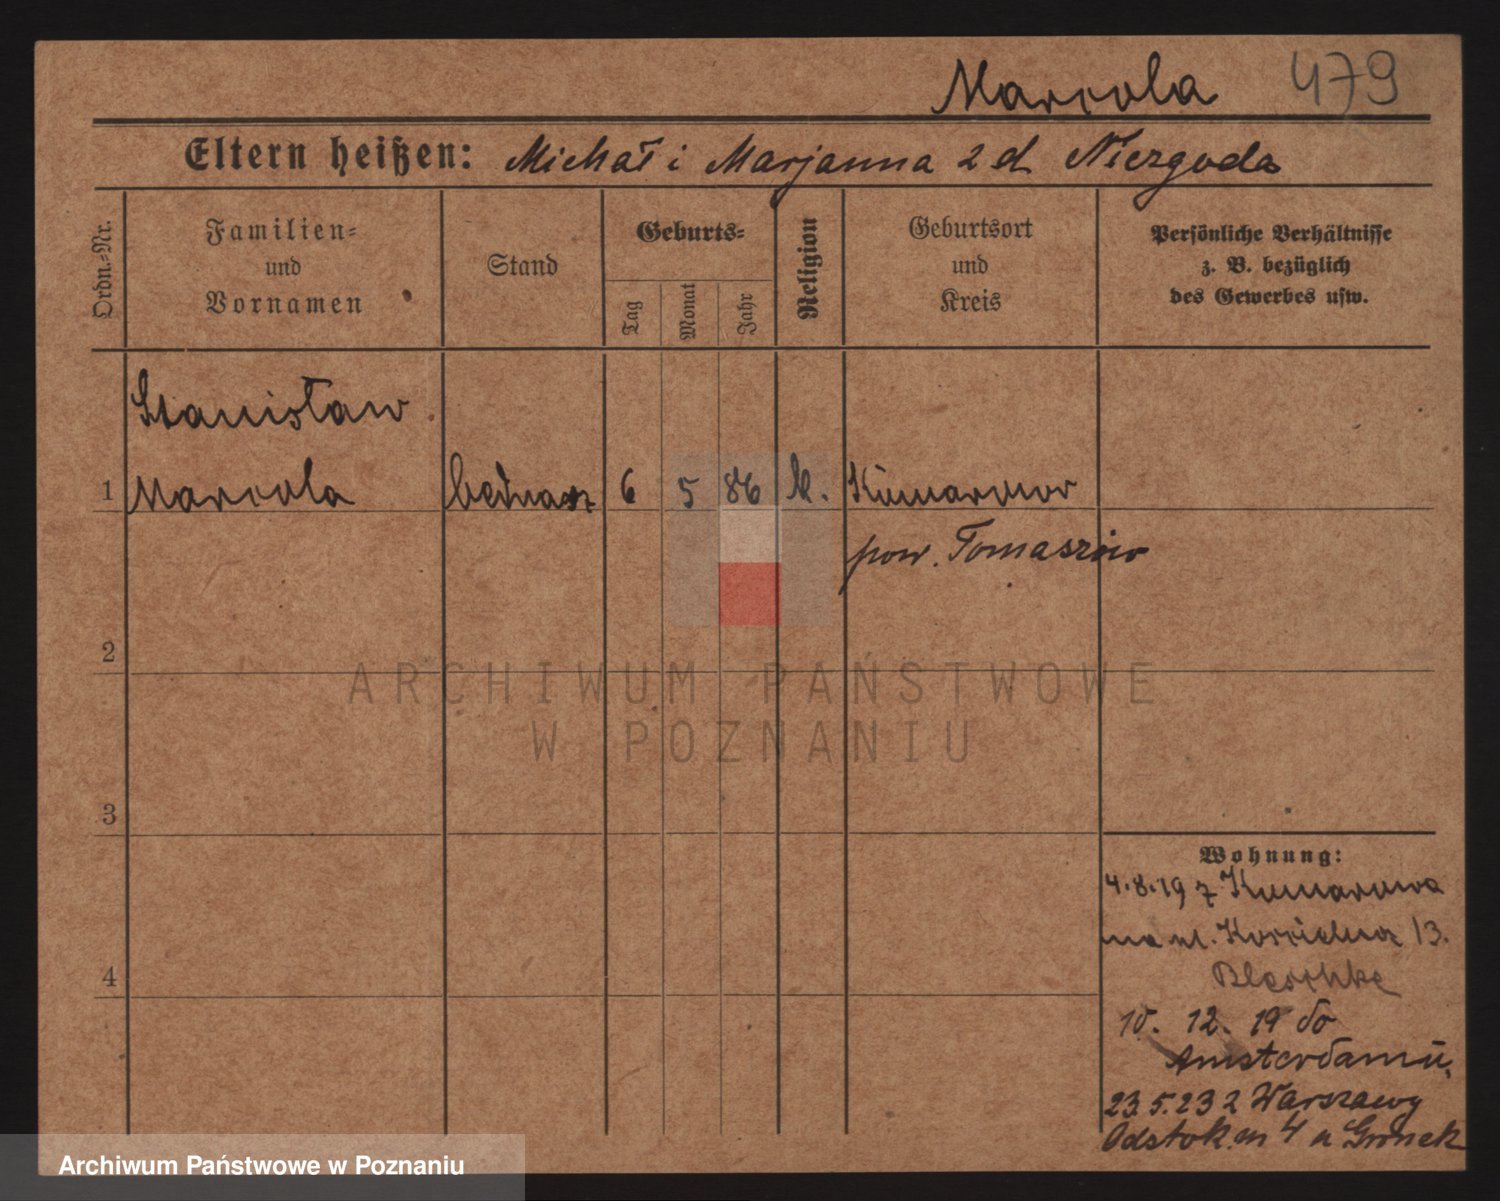 Marcola 479
Eltern heißen: Michał i Marjanna z d Niezgoda
Ordn.-Nr.
Familien-
und
Vornamen
Stand
Geburts-
Tag
Monat
Jahr
Religion
Geburtsort
und
Kreis
Persönliche Verhältnisse
z. B. bezüglich
des Gewerbes usw.
Stanisław
1 Marcola bednarz 6 5 86 k. Kumarowor
pow. Tomaszów
2
ARCHIWUM PAŃSTWOWE
W POZNANIU
3
Wohnung:
4.8.19 z Kumarowa
na ul. Kościelna 13.
Blaschke
4
10. 12. 19 do
Amsterdamu,
23 5.23 z Warszawy
Odstok. m 4 u Gronek
Archiwum Państwowe w Poznaniu